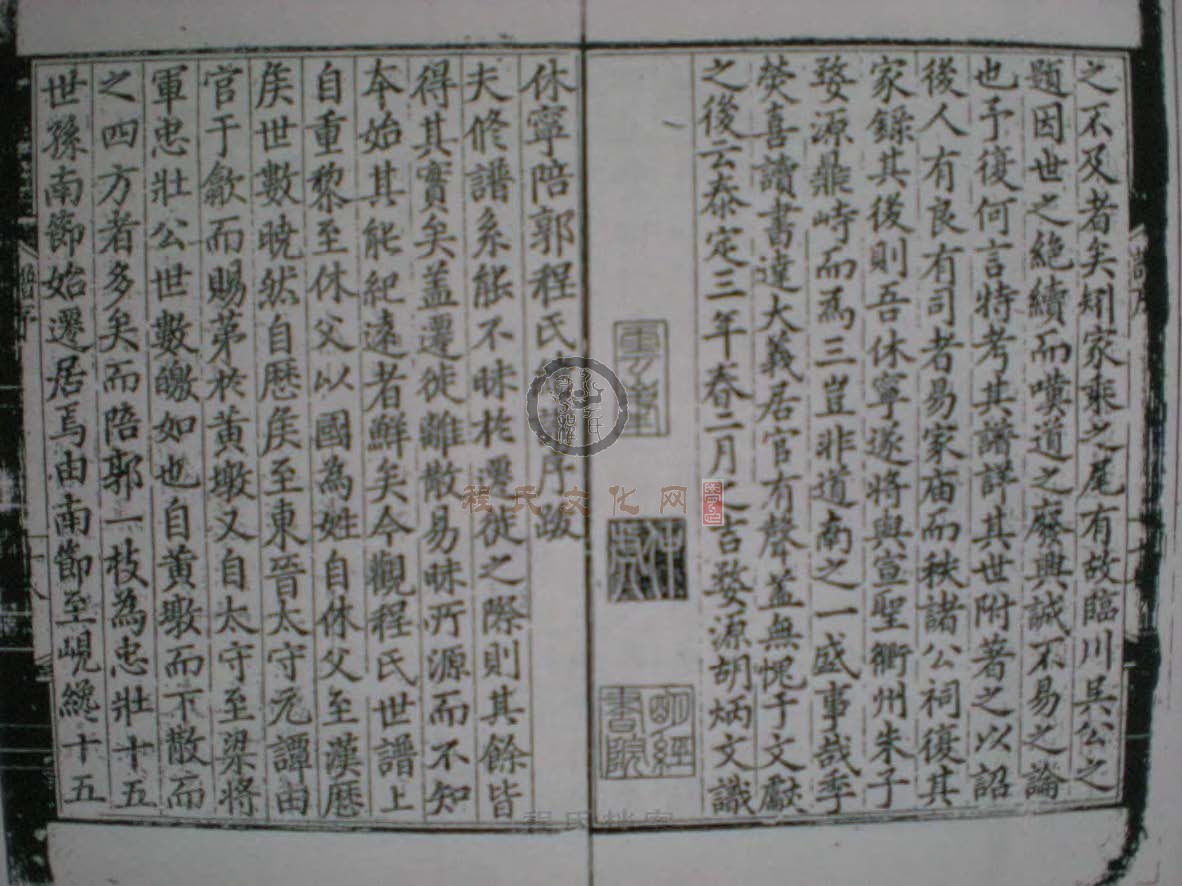 之不及者矣矧家乘之尾有故臨川吳公之
題因世之絶續而嘆道之廢興誠不易之論
也予復何言特考其譜詳其世附著之以詔
後人有良有司者易家庙而秩諸公祠復其
家録其後則吾休寧遂將與宣聖衢州朱子
婺源鼎峙而為三豈非道南之一盛事哉季
癸喜讀書達大義居官有聲蓋無愧于文獻
之後云泰定三年春二月之吉婺源胡炳文識
仲虎
明經書院
休寧陪郭程氏譜序跋
夫修譜系能不昧於遷徙之際則其餘皆
得其實矣蓋遷徙離散易昧所源而不知
本始其能紀遠者鮮矣今觀程氏世譜上
自重黎至休父以國為姓自休父至漢歷
矦世數曉然自歷矦至東晉太守元譚由
官于歙而賜苐於黄墩又自太守至梁將
軍忠壯公世數皦如也自黄墩而下散而
之四方者多矣而陪郭一枝為忠壯十五
世孫南節始遷居焉由南節至峴纔十五
程氏文化网